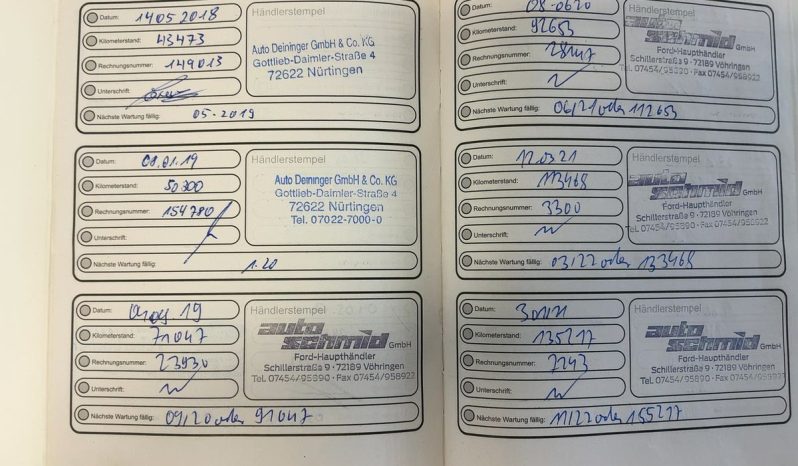 Datum: 14.05.2018
Kilometerstand: 43473
Rechnungsnummer: 149013
Unterschrift:
Nächste Wartung fällig: 05-2019
Händlerstempel
Auto Deininger GmbH & Co. KG
Gottlieb-Daimler-Straße 4
72622 Nürtingen
Datum: 01.01.19
Kilometerstand: 50300
Rechnungsnummer: 154780
Unterschrift:
Nächste Wartung fällig: 1.20
Händlerstempel
Auto Deininger GmbH & Co. KG
Gottlieb-Daimler-Straße 4
72622 Nürtingen
Tel. 07022-7000-0
Datum: 19
Kilometerstand: 71047
Rechnungsnummer: 23930
Unterschrift:
Nächste Wartung fällig: 09/20 oder 91047
Händlerstempel
auto schmid GmbH
Ford-Haupthändler
Schillerstraße 9 · 72189 Vöhringen
Tel. 07454/95890 · Fax 07454/958922
Datum: 08-0620
Kilometerstand: 92653
Rechnungsnummer:
Unterschrift:
Nächste Wartung fällig: 06/21 oder 112653
Händlerstempel
auto schmid GmbH
Ford-Haupthändler
Schillerstraße 9 · 72189 Vöhringen
Tel. 07454/95890 · Fax 07454/958922
Datum: 12.03.21
Kilometerstand: 113468
Rechnungsnummer: 3300
Unterschrift:
Nächste Wartung fällig: 03/22 oder 133468
Händlerstempel
auto schmid GmbH
Ford-Haupthändler
Schillerstraße 9 · 72189 Vöhringen
Tel. 07454/95890 · Fax 07454/958922
Datum:
Kilometerstand: 135217
Rechnungsnummer: 7243
Unterschrift:
Nächste Wartung fällig: 11/22 oder 155217
Händlerstempel
auto schmid GmbH
Ford-Haupthändler
Schillerstraße 9 · 72189 Vöhringen
Tel. 07454/95890 · Fax 07454/958922